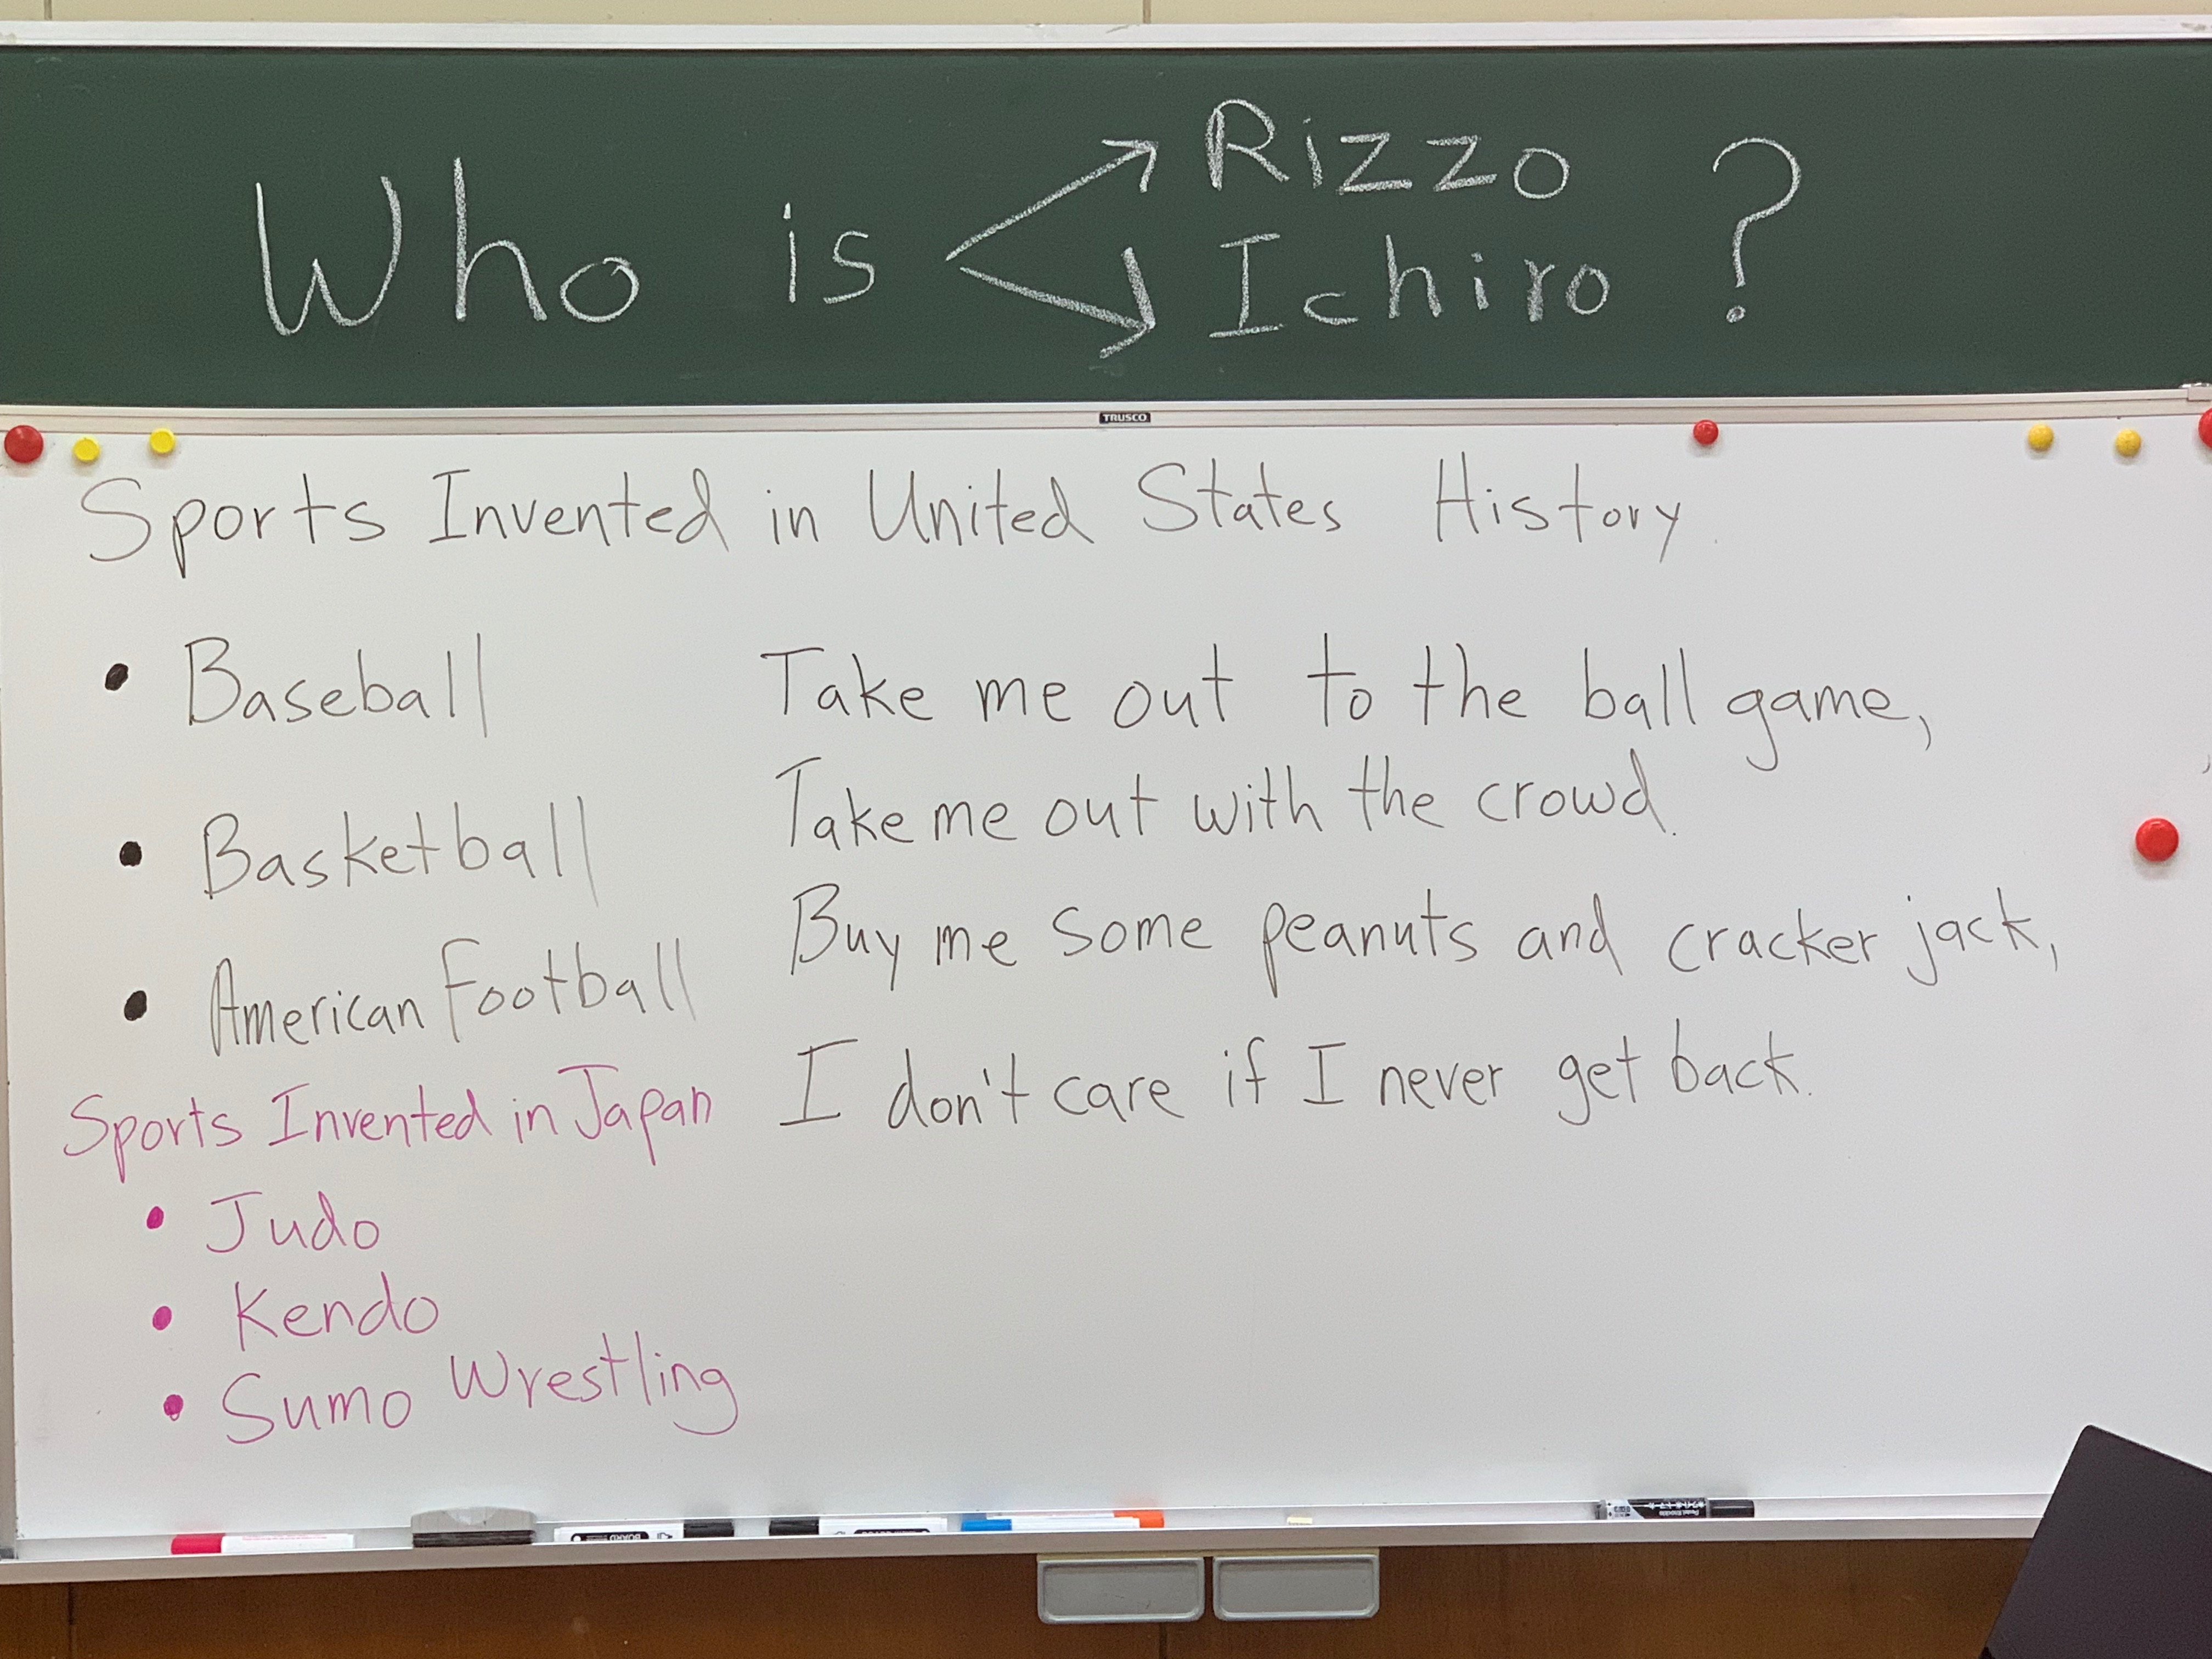 Who is Rizzo
Ichiro ?
TRUSCO
Sports Invented in United States History.
• Baseball
• Basketball
• American Football
Take me out to the ball game,
Take me out with the crowd.
Buy me some peanuts and cracker jack,
I don't care if I never get back.
Sports Invented in Japan
• Judo
• Kendo
• Sumo Wrestling
BOARD